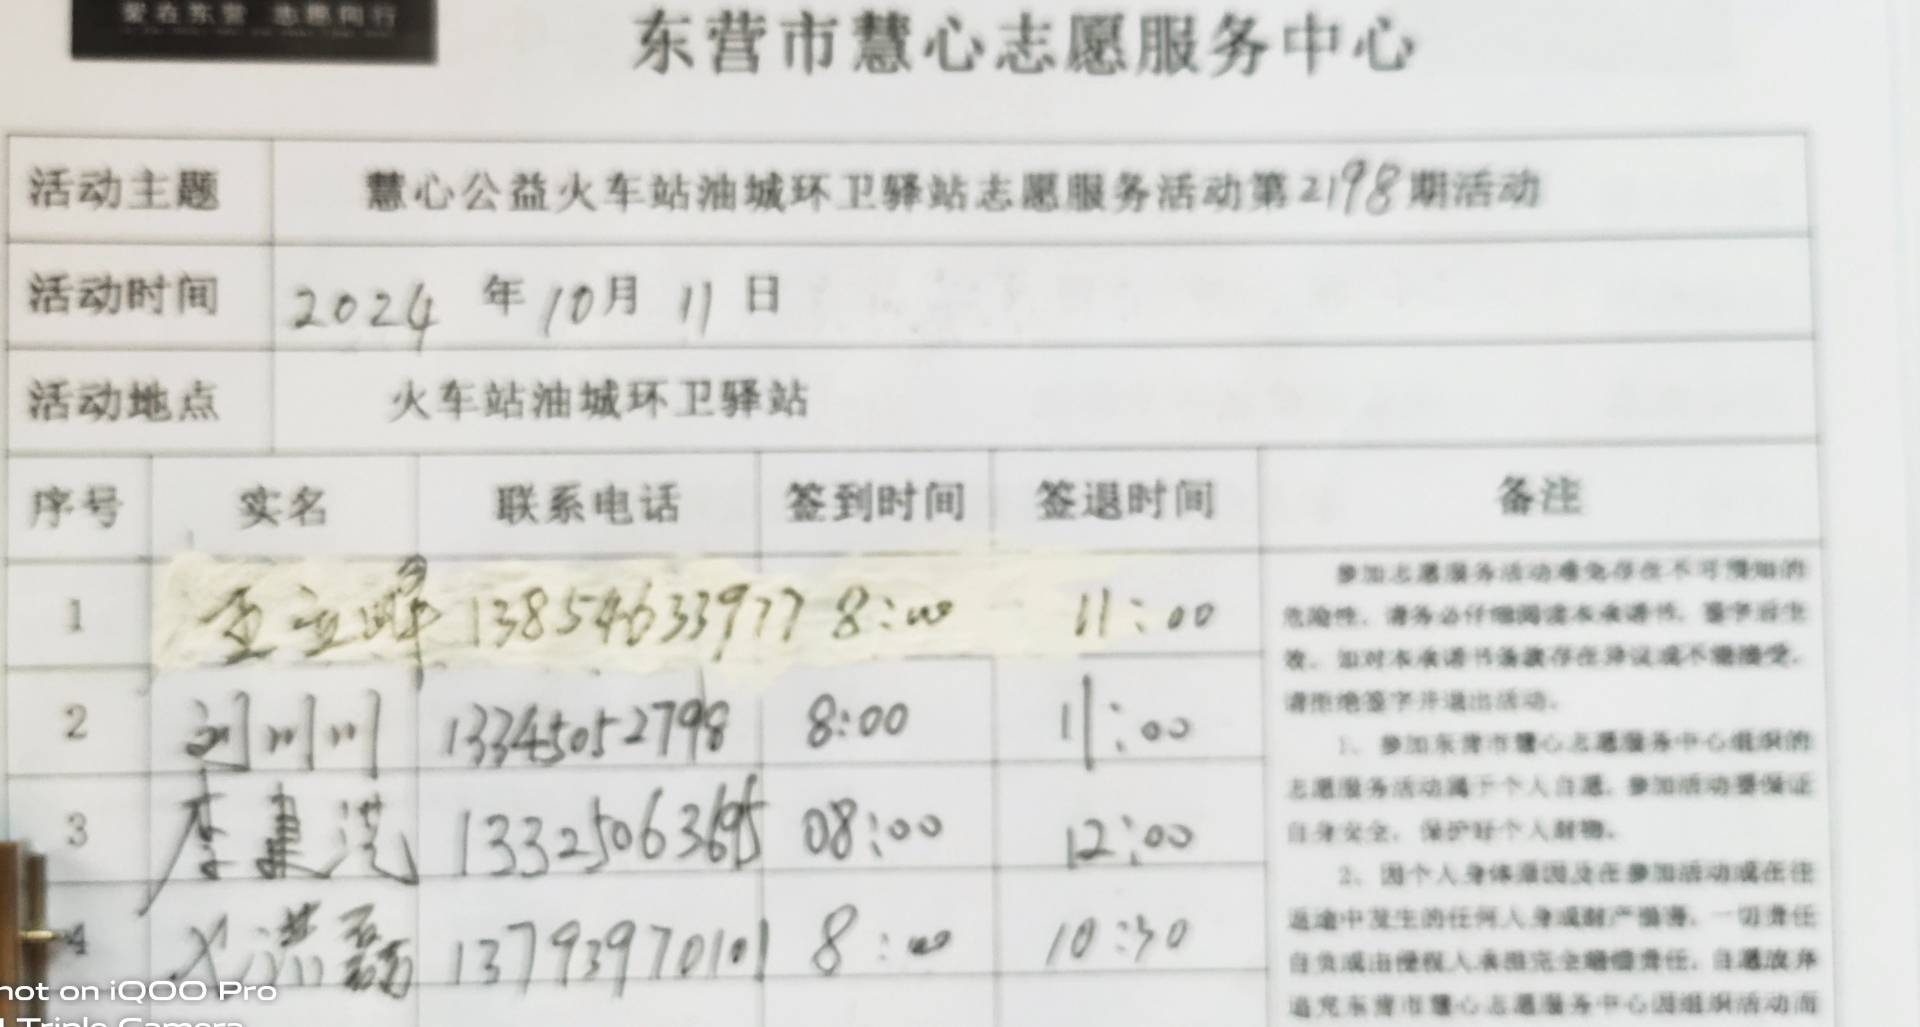 爱在东营 志愿同行
东营市慧心志愿服务中心
活动主题 慧心公益火车站油城环卫驿站志愿服务活动第2198期活动
活动时间 2024 年 10月 11 日
活动地点 火车站油城环卫驿站
序号 实名 联系电话 签到时间 签退时间 备注
1 13854633977 8:00 11:00
2 刘川川 13345052798 8:00 11:00
3 李建洪 08:00 12:00
4 13793970101 8:00 10:30
参加志愿服务活动难免存在不可预知的
危险性,请务必仔细阅读本承诺书,签字后生
效。如对本承诺书条款存在异议或不能接受,
请拒绝签字并退出活动。
1、参加东营市慧心志愿服务中心组织的
志愿服务活动属于个人自愿,参加活动要保证
自身安全,保护好个人财物。
2、因个人身体原因及在参加活动或在往
返途中发生的任何人身或财产损害,一切责任
自负或由侵权人承担完全赔偿责任,自愿放弃
追究东营市慧心志愿服务中心因组织活动而
hot on iQOO Pro
Triple Camera